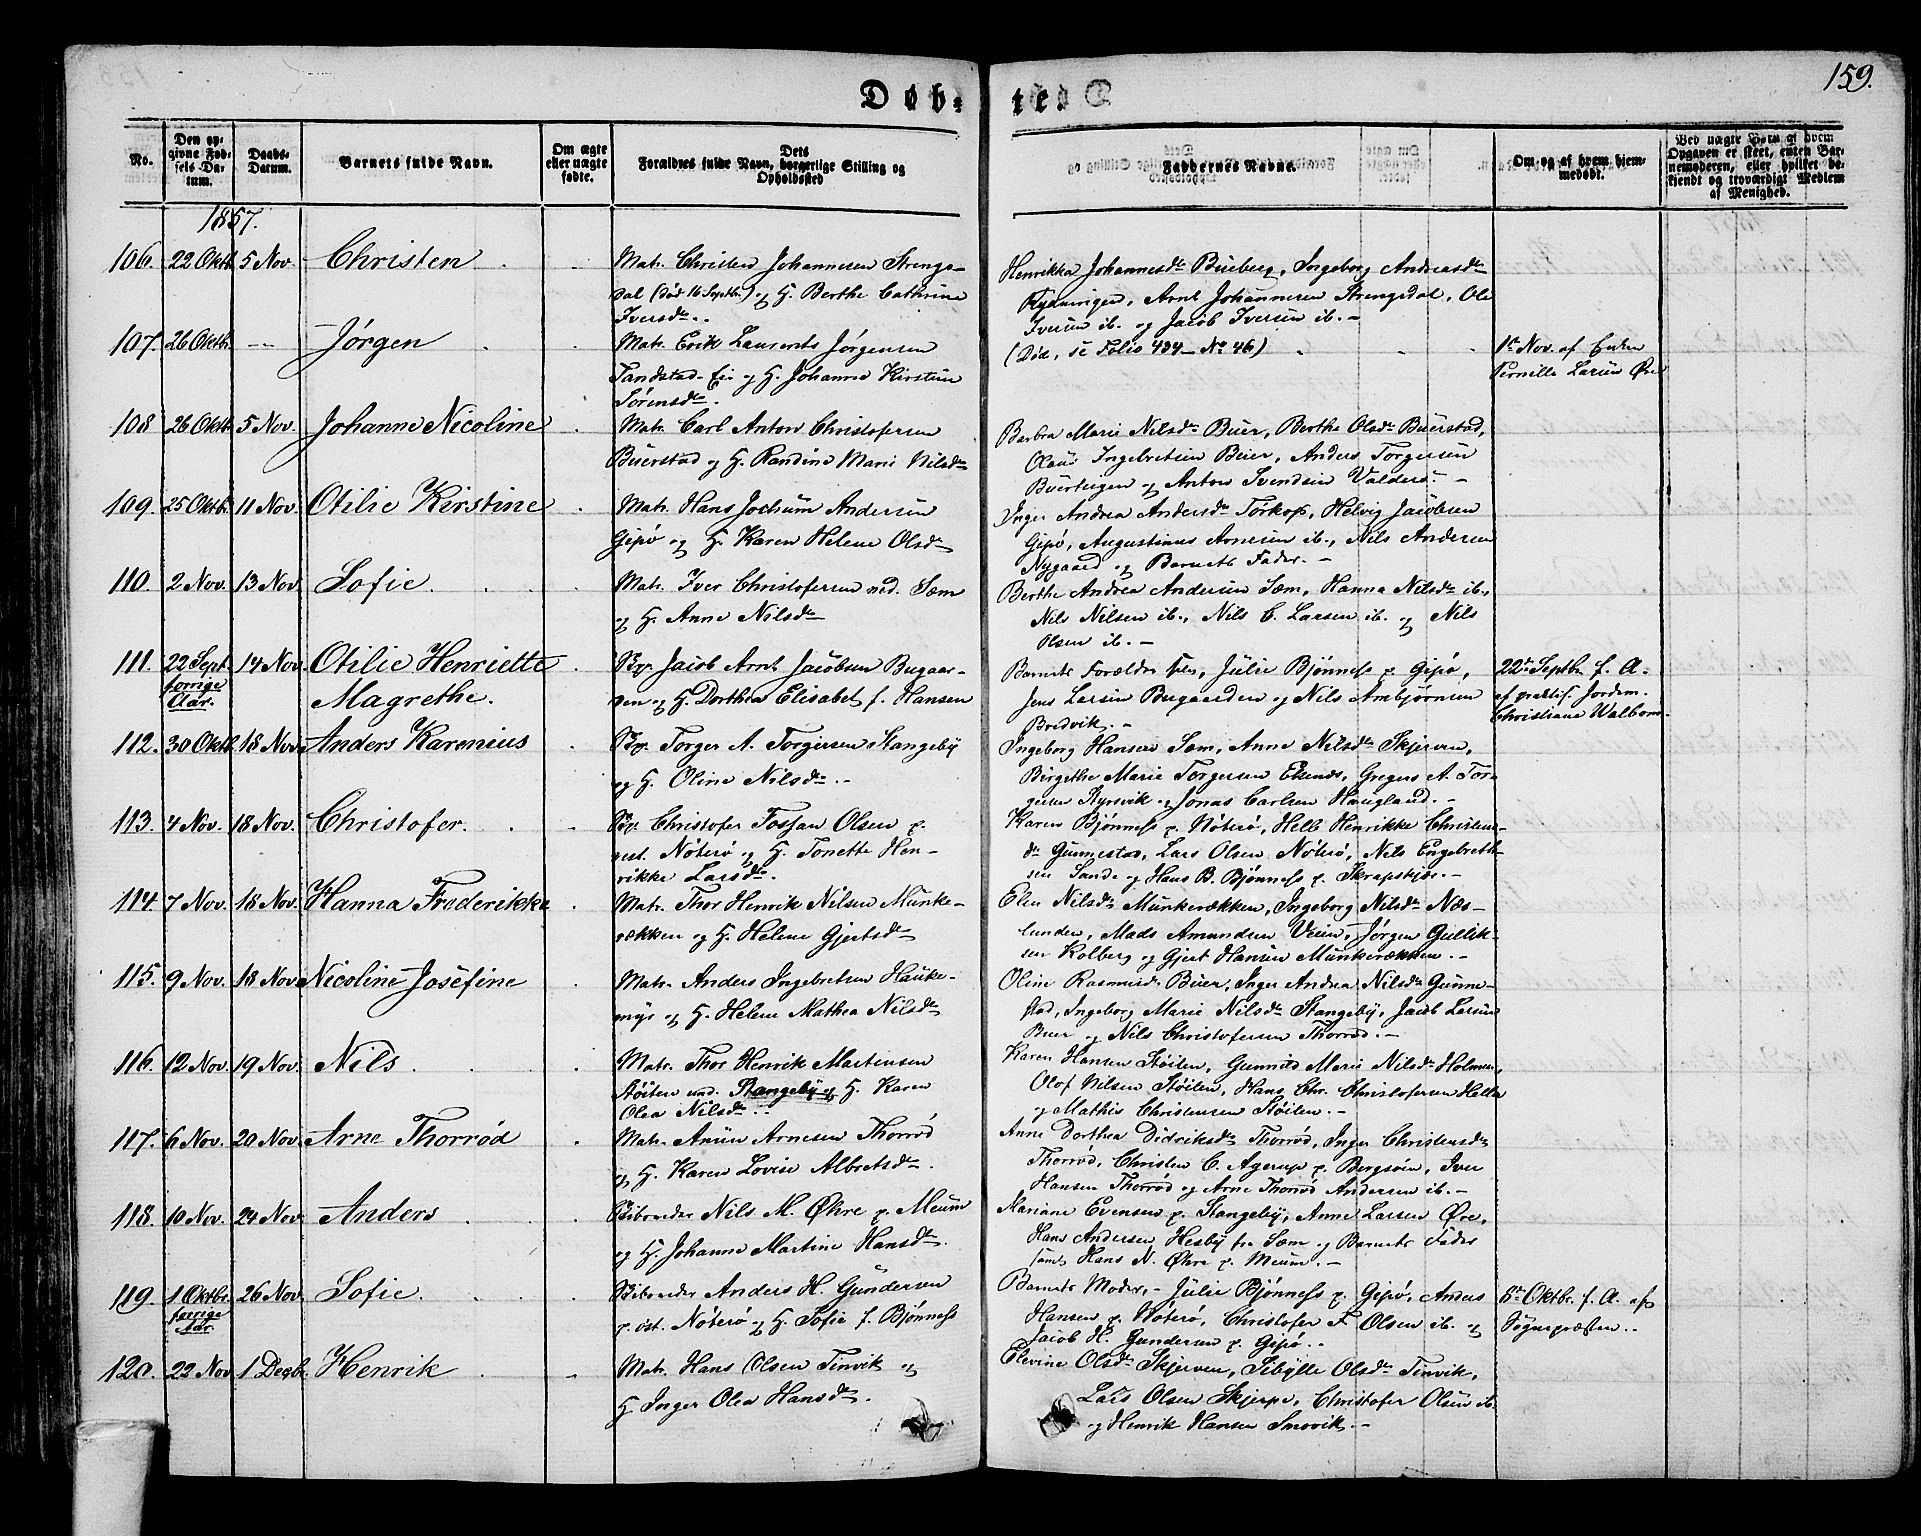 159.
Døb- te.
No.
Den op-
givne Fød-
sels Da-
tum.
Daabs-
Datum.
Barnets fulde Navn.
Om ægte
eller uægte
fødte.
Dets
Forældres fulde Navn, borgerlige Stilling og
Opholdssted
Faddernes Navne.
Om og af hvem hjem-
medøbt.
Ved uægte Børn af hvem
Opgaven er skeet, enten Bar-
nemoderen, eller hvilket be-
kjendt og troværdigt Medlem
af Menighed.
1857.
106. 22 Oktb. 5 Nov. Christen
Matr. Christen Johannesen Strengs-
dal (død 16 Septbr.) og H. Berthe Cathrine
Iversdtr.
Henrikka Johannesdtr. Bueberg, Ingeborg Andreasdtr.
Arnt Johannesen Strengsdal, Ole
Iversen ib. og Jacob Iversen ib. —
107. 26 Oktb. — Jørgen
Matr. Erik Laurents Jørgensen
Tandstad-Eie og H. Johanne Kirstine
Sørensdtr.
(Død, se Folio 434 — No 46)
1ste Nov. af Enken
Pernille Larsen Øre
108 26 Oktb. 5 Nov. Johanne Nicoline
Matr. Carl Anton Christofersen
Buerstad og H. Randine Marie Nilsdtr.
Barbra Marie Nilsdtr. Buer, Berthe Olsdtr. Buerstad,
Olaus Ingebretsen Buer, Anders Torgersen
og Anton Svendsen Valders. —
109. 25 Oktb. 11 Nov. Otilie Kirstine
Matr. Hans Jochum Andersen
Gipø og H. Karen Helene Olsdtr.
Inger Andrea Andersdtr. Torkop, Helvig Jacobsen
Gipø, Augustinus Arnesen ib., Nils Andersen
Nygaard og Barnets Fader. —
110. 2 Nov. 13 Nov. Sofie
Matr. Iver Christofersen ned. Sæm
og H. Anne Nilsdtr.
Berthe Andrea Andersen Sæm, Hanna Nilsdtr. ib.,
Nils Nilsen ib., Nils C. Larsen ib. og Nils
Olsen ib. —
111. 22 Sept. forrige Aar. 14 Nov. Otilie Henriette
Magrethe.
Bgr. Jacob Arnt Jacobsen Bugaar-
den og H. Dorthea Elisabet f. Hansen
Barnets Forældre selv, Julie Bjønness p. Gipø,
Jens Larsen Bugaarden og Nils Arnbjørnsen
Bredvik. —
22de Septbr. f. A.
af praktis. Jordem.
Christiane Walborn.
112. 30 Oktb. 18 Nov. Anders Karenius
Bgr. Torger A. Torgersen Stangeby
og H. Oline Nilsdtr. —
Ingeborg Hansen Sæm, Anne Nilsdtr. Skjerven,
Birgethe Marie Torgersen Ekenæs, Gregers A. Tor-
gersen Byrsvik og Jonas Carlsen Haugland. —
113. 4 Nov. 18 Nov. Christofer.
Bgr. Christofer Fossan Olsen p.
vest. Nøterø og H. Tonette Hen-
rikke Larsdtr.
Karen Bjønness p. Nøterø, Helle Henrikke Christens-
dtr. Gunnestad, Lars Olsen Nøterø, Nils Engebreth-
sen Sande og Hans B. Bjønness p. Skrapstjøl. —
114. 7 Nov. 18 Nov. Hanna Frederikke
Matr. Thor Henrik Nilsen Munke-
rækken og H. Helene Gjertsdtr.
Elen Nilsdtr. Munkerækken, Ingeborg Nilsdtr. Næs-
lunden, Mads Amundsen Veien, Jørgen Gullik-
sen Kolberg og Gjert Hansen Munkerækken. —
115. 9 Nov. 18 Nov. Nicoline Josefine
Matr. Anders Ingebretsen Hauke-
myr og H. Helene Mathea Nilsdtr.
Oline Rasmusdtr. Buer, Inger Andrea Nilsdtr. Gunne-
stad, Ingeborg Marie Nilsdtr. Stangeby, Jacob Larsen
Buer og Nils Christofersen Thorrød. —
116. 12 Nov. 19 Nov. Nils
Matr. Thor Henrik Martensen
Støilen und. Stangeby og H. Karen
Olea Nilsdtr.
Karen Hansen Støilen, Gunnild Marie Nilsdtr. Holmen,
Olof Nilsen Støilen, Hans Chr. Christofersen Hella
og Mathis Christensen Støilen. —
117. 6 Nov. 20 Nov. Arne Thorrød
Matr. Anun Arnesen Thorrød
og H. Karen Lovise Albretsdtr.
Anne Dorthea Didriksdtr. Thorrød, Inger Christensdtr.
Thorrød, Christen C. Agerup p. Bergsøen, Iver
Hansen Thorrød og Arne Thorrød Andersen ib. —
118. 10 Nov. 24 Nov. Anders
Sibruder Nils M. Øhre p. Meum
og H. Johanne Martine Hansdtr.
Mariane Evensen p. Stangeby, Anne Larsen Øre,
Hans Andersen Hesby fra Sæm og Barnets Fader
samt Hans N. Øhre p. Meum. —
119. 1 Oktbr. forrige Aar. 26 Nov. Sofie.
Sibruder Anders H. Gundersen
p. øst. Nøterø og H. Sofie f. Bjønness
Barnets Moder, — Julie Bjønness p. Gipø, Anders
Hansen p. Nøterø, Christofer F. Olsen ib. og
Jacob H. Gundersen p. Gipø.
8de Oktbr. f. A. af
Sognepræsten.
120. 22 Nov. 1 Decbr. Henrik
Matr. Hans Olsen Tinvik og
H. Inger Olea Hansdtr.
Elevine Olsdtr. Skjerven, Sibylle Olsdtr. Tinvik,
Lars Olsen Skjerpe, Christofer Olsen ib.
og Henrik Hansen Snovik. —